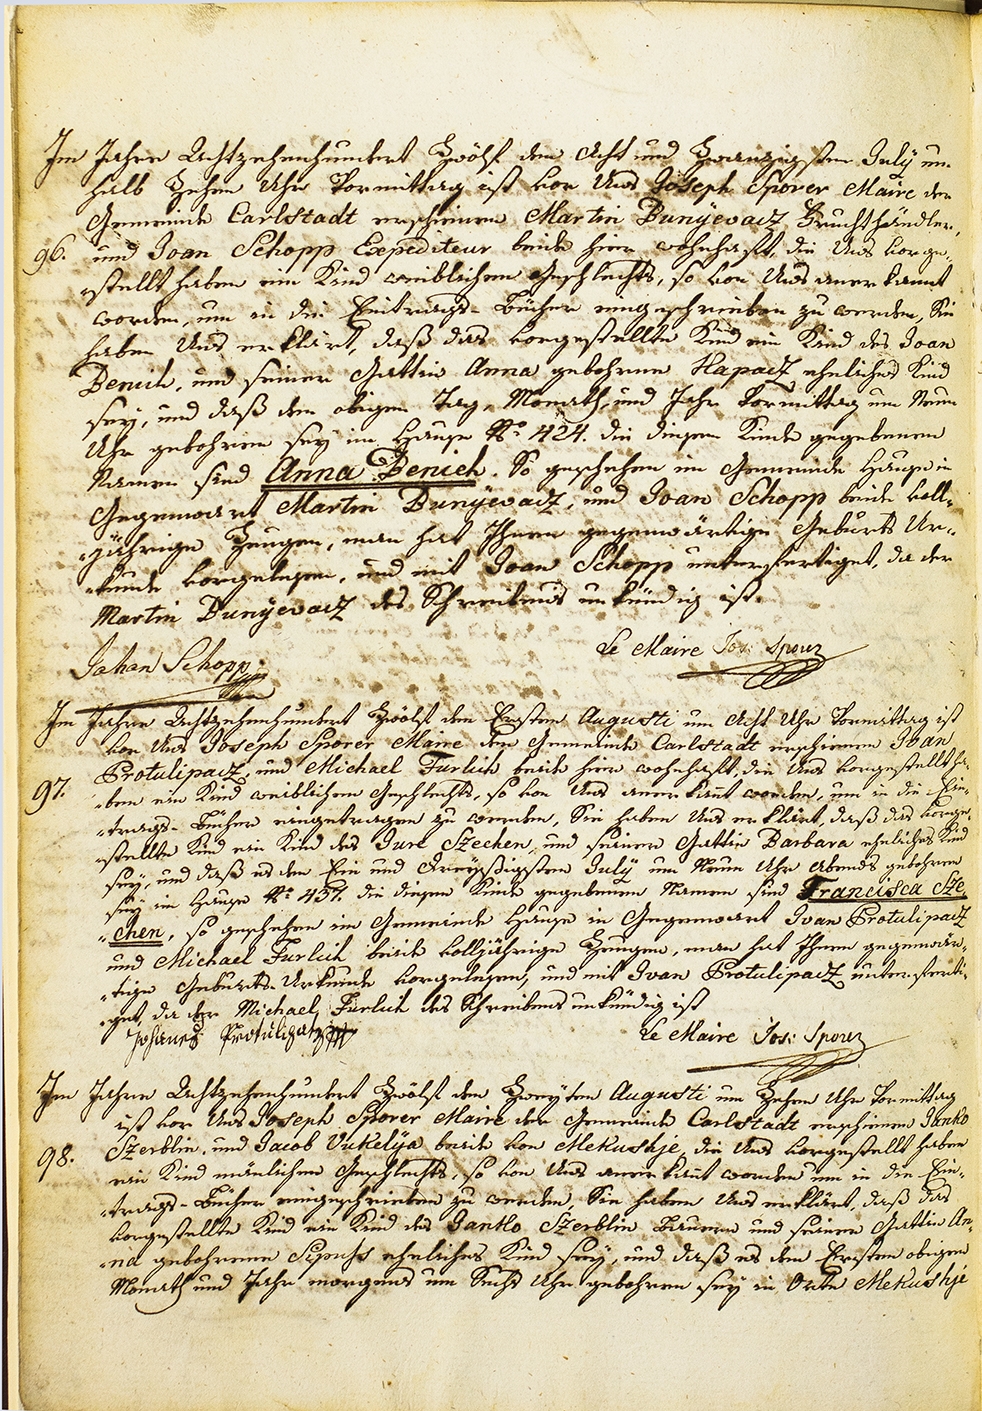 Im Jahre Achtzehenhundert Zwölf den Acht und Zwanzigsten July um
halb Zehen Uhr Vormittag ist vor Uns Joseph Sporer Maire der
Gemeinde Carlstadt erschienen Martin Bunyevacz Fruchthändler,
96. und Ivan Schopp Expediteur beide hier wohnhaft, die Uns vorge-
-stellt haben ein Kind weiblichen Geschlechts, so von Uns anerkannt
worden, um in die Eintrags-Bücher eingeschrieben zu werden, Sie
haben Uns erklärt, daß das vorgestellte Kind ein Kind des Ivan
Benich, und seiner Gattin Anna gebohrne Hapacz eheliches Kind
sey, und daß den obigen Tag, Monath, und Jahr Vormittag um Neun
Uhr gebohren sey im Hause No. 424. die diesem Kinde gegebenen
Namen sind Anna Benich. So geschehen im Gemeinde Hause in
Gegenwart Martin Bunyevacz, und Ivan Schopp beide voll-
-jährige Zeugen, man hat Ihnen gegenwärtige Geburts Ur-
-kunde vorgelesen, und mit Ivan Schopp unterfertiget, da der
Martin Bunyevacz des Schreibens unkündig ist.
Johan Schopp Le Maire Jos: Sporer
Im Jahre Achtzehenhundert Zwölf den Ersten Augusti um Acht Uhr Vormittag ist
vor Uns Joseph Sporer Maire der Gemeinde Carlstadt erschienen Ivan
Protulipacz, und Michael Furlich beide hier wohnhaft, die Uns vorgestellt ha-
97. -ben ein Kind weiblichen Geschlechts, so von Uns anerkannt worden, um in die Ein-
-trags-Bücher eingetragen zu werden, Sie haben Uns erklärt, daß das vorge-
-stellte Kind ein Kind des Jure Szechen, und seiner Gattin Barbara eheliches Kind
sey, und daß es den Ein und Dreyßigsten July um Neun Uhr Abends gebohren
sey im Hause No. 437. die diesem Kinde gegebenen Namen sind Francisca Sze-
-chen, so geschehen im Gemeinde Hause in Gegenwart Ivan Protulipacz
und Michael Furlich beide volljährige Zeugen, man hat Ihnen gegenwär-
-tige Geburts-Urkunde vorgelesen, und mit Ivan Protulipacz unterferti-
-get, da der Michael Furlich des Schreibens unkündig ist
Johanes Protulipatz Le Maire Jos: Sporer
Im Jahre Achtzehenhundert Zwölf den Zweyten Augusti um Zehen Uhr Vormittag
ist vor Uns Joseph Sporer Maire der Gemeinde Carlstadt erschienen Janko
Szerblin, und Jacob Vukelya beide von Mekushje, die Uns vorgestellt haben
98. ein Kind mänlichen Geschlechts, so von Uns anerkannt worden um in die Ein-
-trags-Bücher eingeschrieben zu werden, Sie haben Uns erklärt, daß das
vorgestellte Kind ein Kind des Janko Szerblin Bauern und seiner Gattin An-
-na gebohrenen eheliches Kind sey, und daß es den Ersten obigen
Monath und Jahr morgens um Sechs Uhr gebohren sey in Orte Mekushje